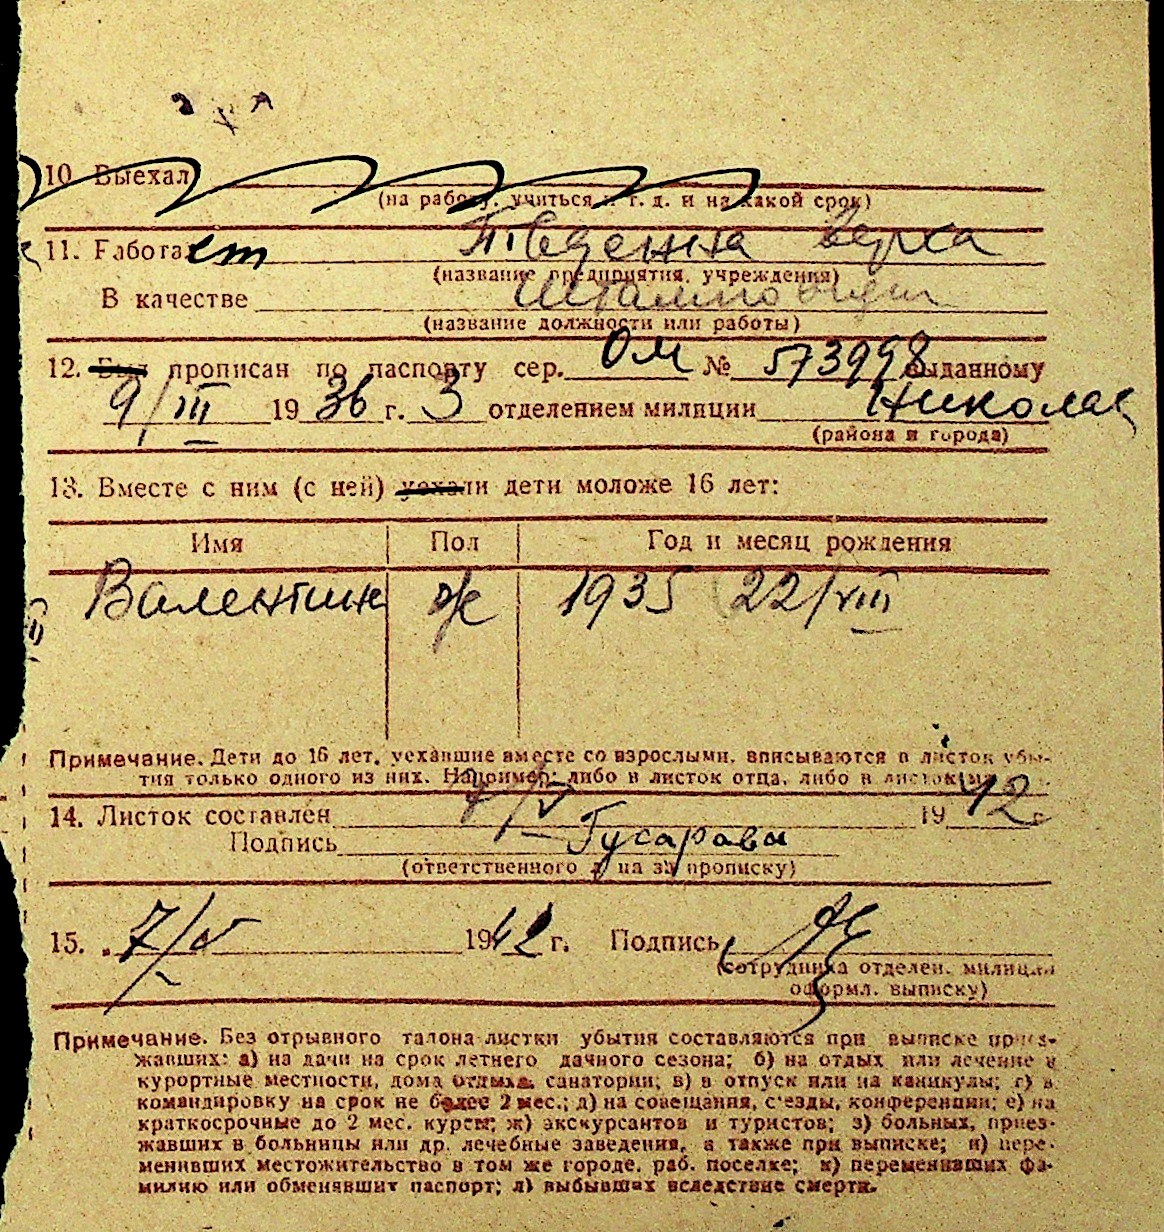 10. Выехал
(на работу, учиться и т. д. и на какой срок)
11. Работает верха
(название предприятия, учреждения)
В качестве
(название должности или работы)
12. Был прописан по паспорту сер. ОМ № 573998 выданному
9/III 1936 г. 3 отделением милиции Николаев
(района и города)
13. Вместе с ним (с ней) уехали дети моложе 16 лет:
Имя Пол Год и месяц рождения
Валентин ж 1935 22/VIII
Примечание. Дети до 16 лет, уехавшие вместе со взрослыми, вписываются в листок убы-
тия только одного из них. Например: либо в листок отца, либо в листок
14. Листок составлен 7/V 1942 г.
Подпись Гусарова
(ответственного лица за прописку)
15. „7/V 1942 г. Подпись
(сотрудника отделен. милиции
оформл. выписку)
Примечание. Без отрывного талона листки убытия составляются при выписке приез-
жавших: а) на дачи на срок летнего дачного сезона; б) на отдых или лечение в
курортные местности, дома отдыха, санатории; в) в отпуск или на каникулы; г) в
командировку на срок не более 2 мес.; д) на совещания, с'езды, конференции; е) на
краткосрочные до 2 мес. курсы; ж) экскурсантов и туристов; з) больных, приез-
жавших в больницы или др. лечебные заведения, а также при выписке; и) пере-
менивших местожительство в том же городе, раб. поселке; к) переменивших фа-
милию или обменявших паспорт; л) выбывших вследствие смерти.